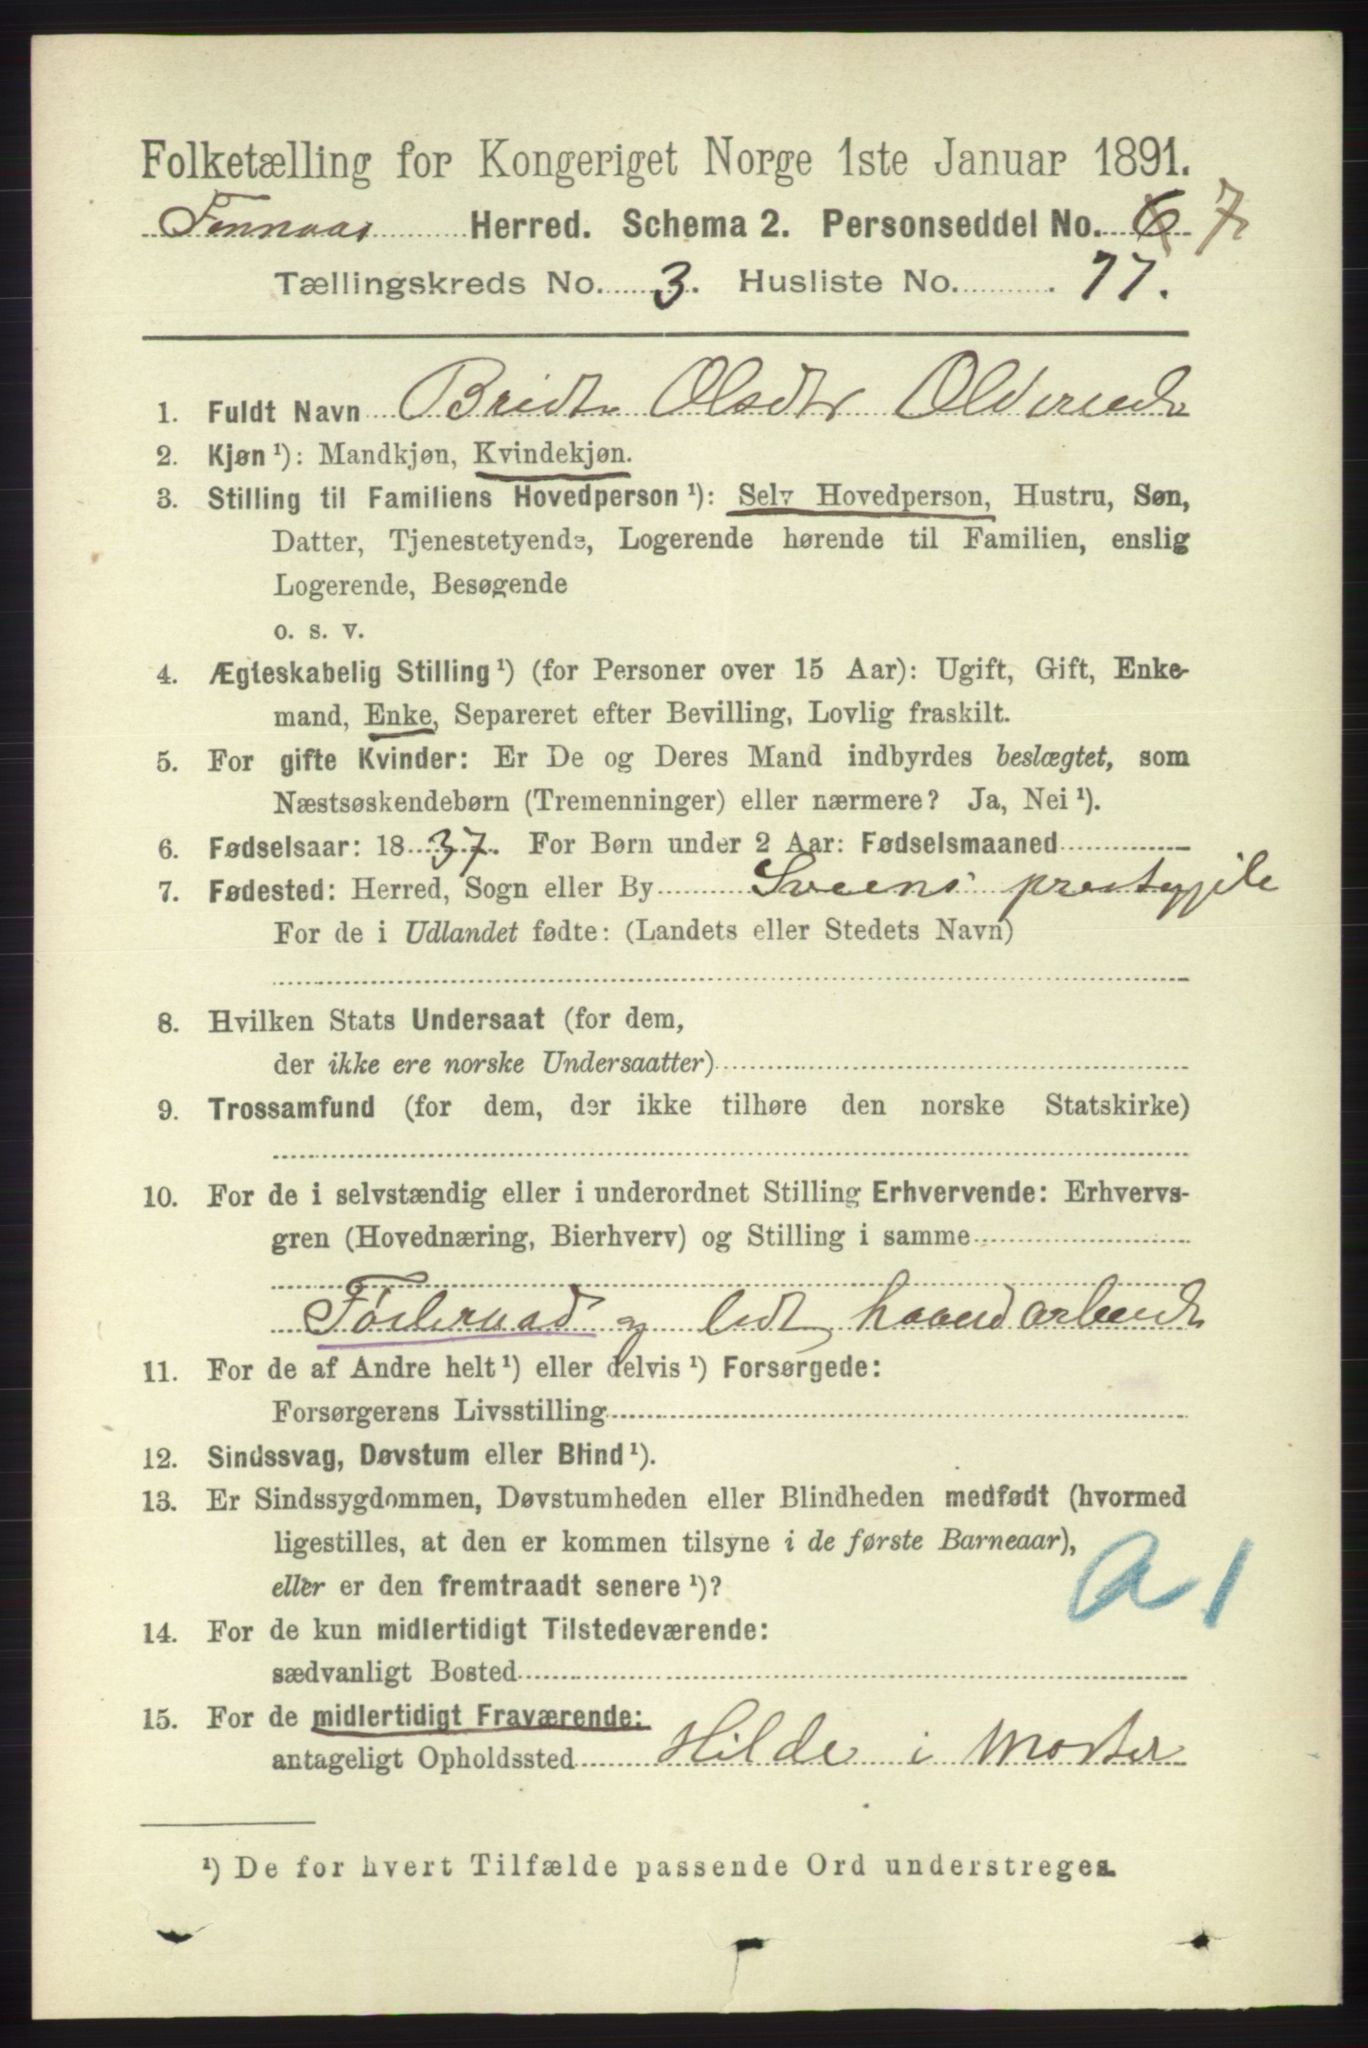 Folketælling for Kongeriget Norge 1ste Januar 1891.
Finnaas Herred. Schema 2. Personseddel No. 6 7
Tællingskreds No. 3. Husliste No. 77.
1. Fuldt Navn Bridte Olsdtr
2. Kjøn ¹): Mandkjøn, Kvindekjøn.
3. Stilling til Familiens Hovedperson ¹): Selv Hovedperson, Hustru, Søn,
Datter, Tjenestetyende, Logerende hørende til Familien, enslig
Logerende, Besøgende
o. s. v.
4. Ægteskabelig Stilling ¹) (for Personer over 15 Aar): Ugift, Gift, Enke-
mand, Enke, Separeret efter Bevilling, Lovlig fraskilt.
5. For gifte Kvinder: Er De og Deres Mand indbyrdes beslægtet, som
Næstsøskendebørn (Tremenninger) eller nærmere? Ja, Nei ¹).
6. Fødselsaar: 1837. For Børn under 2 Aar: Fødselsmaaned
7. Fødested: Herred, Sogn eller By Sveens prestegjile
For de i Udlandet fødte: (Landets eller Stedets Navn)
8. Hvilken Stats Undersaat (for dem,
der ikke ere norske Undersaatter)
9. Trossamfund (for dem, der ikke tilhøre den norske Statskirke)
10. For de i selvstændig eller i underordnet Stilling Erhvervende: Erhvervs-
gren (Hovednæring, Bierhverv) og Stilling i samme
Föderaad og lidt haandarbeide
11. For de af Andre helt ¹) eller delvis ¹) Forsørgede:
Forsørgerens Livsstilling
12. Sindssvag, Døvstum eller Blind ¹).
13. Er Sindssygdommen, Døvstumheden eller Blindheden medfødt (hvormed
ligestilles, at den er kommen tilsyne i de første Barneaar),
eller er den fremtraadt senere ¹)?
a 1
14. For de kun midlertidigt Tilstedeværende:
sædvanligt Bosted
15. For de midlertidigt Fraværende:
antageligt Opholdssted Hilde i Moster
¹) De for hvert Tilfælde passende Ord understreges.